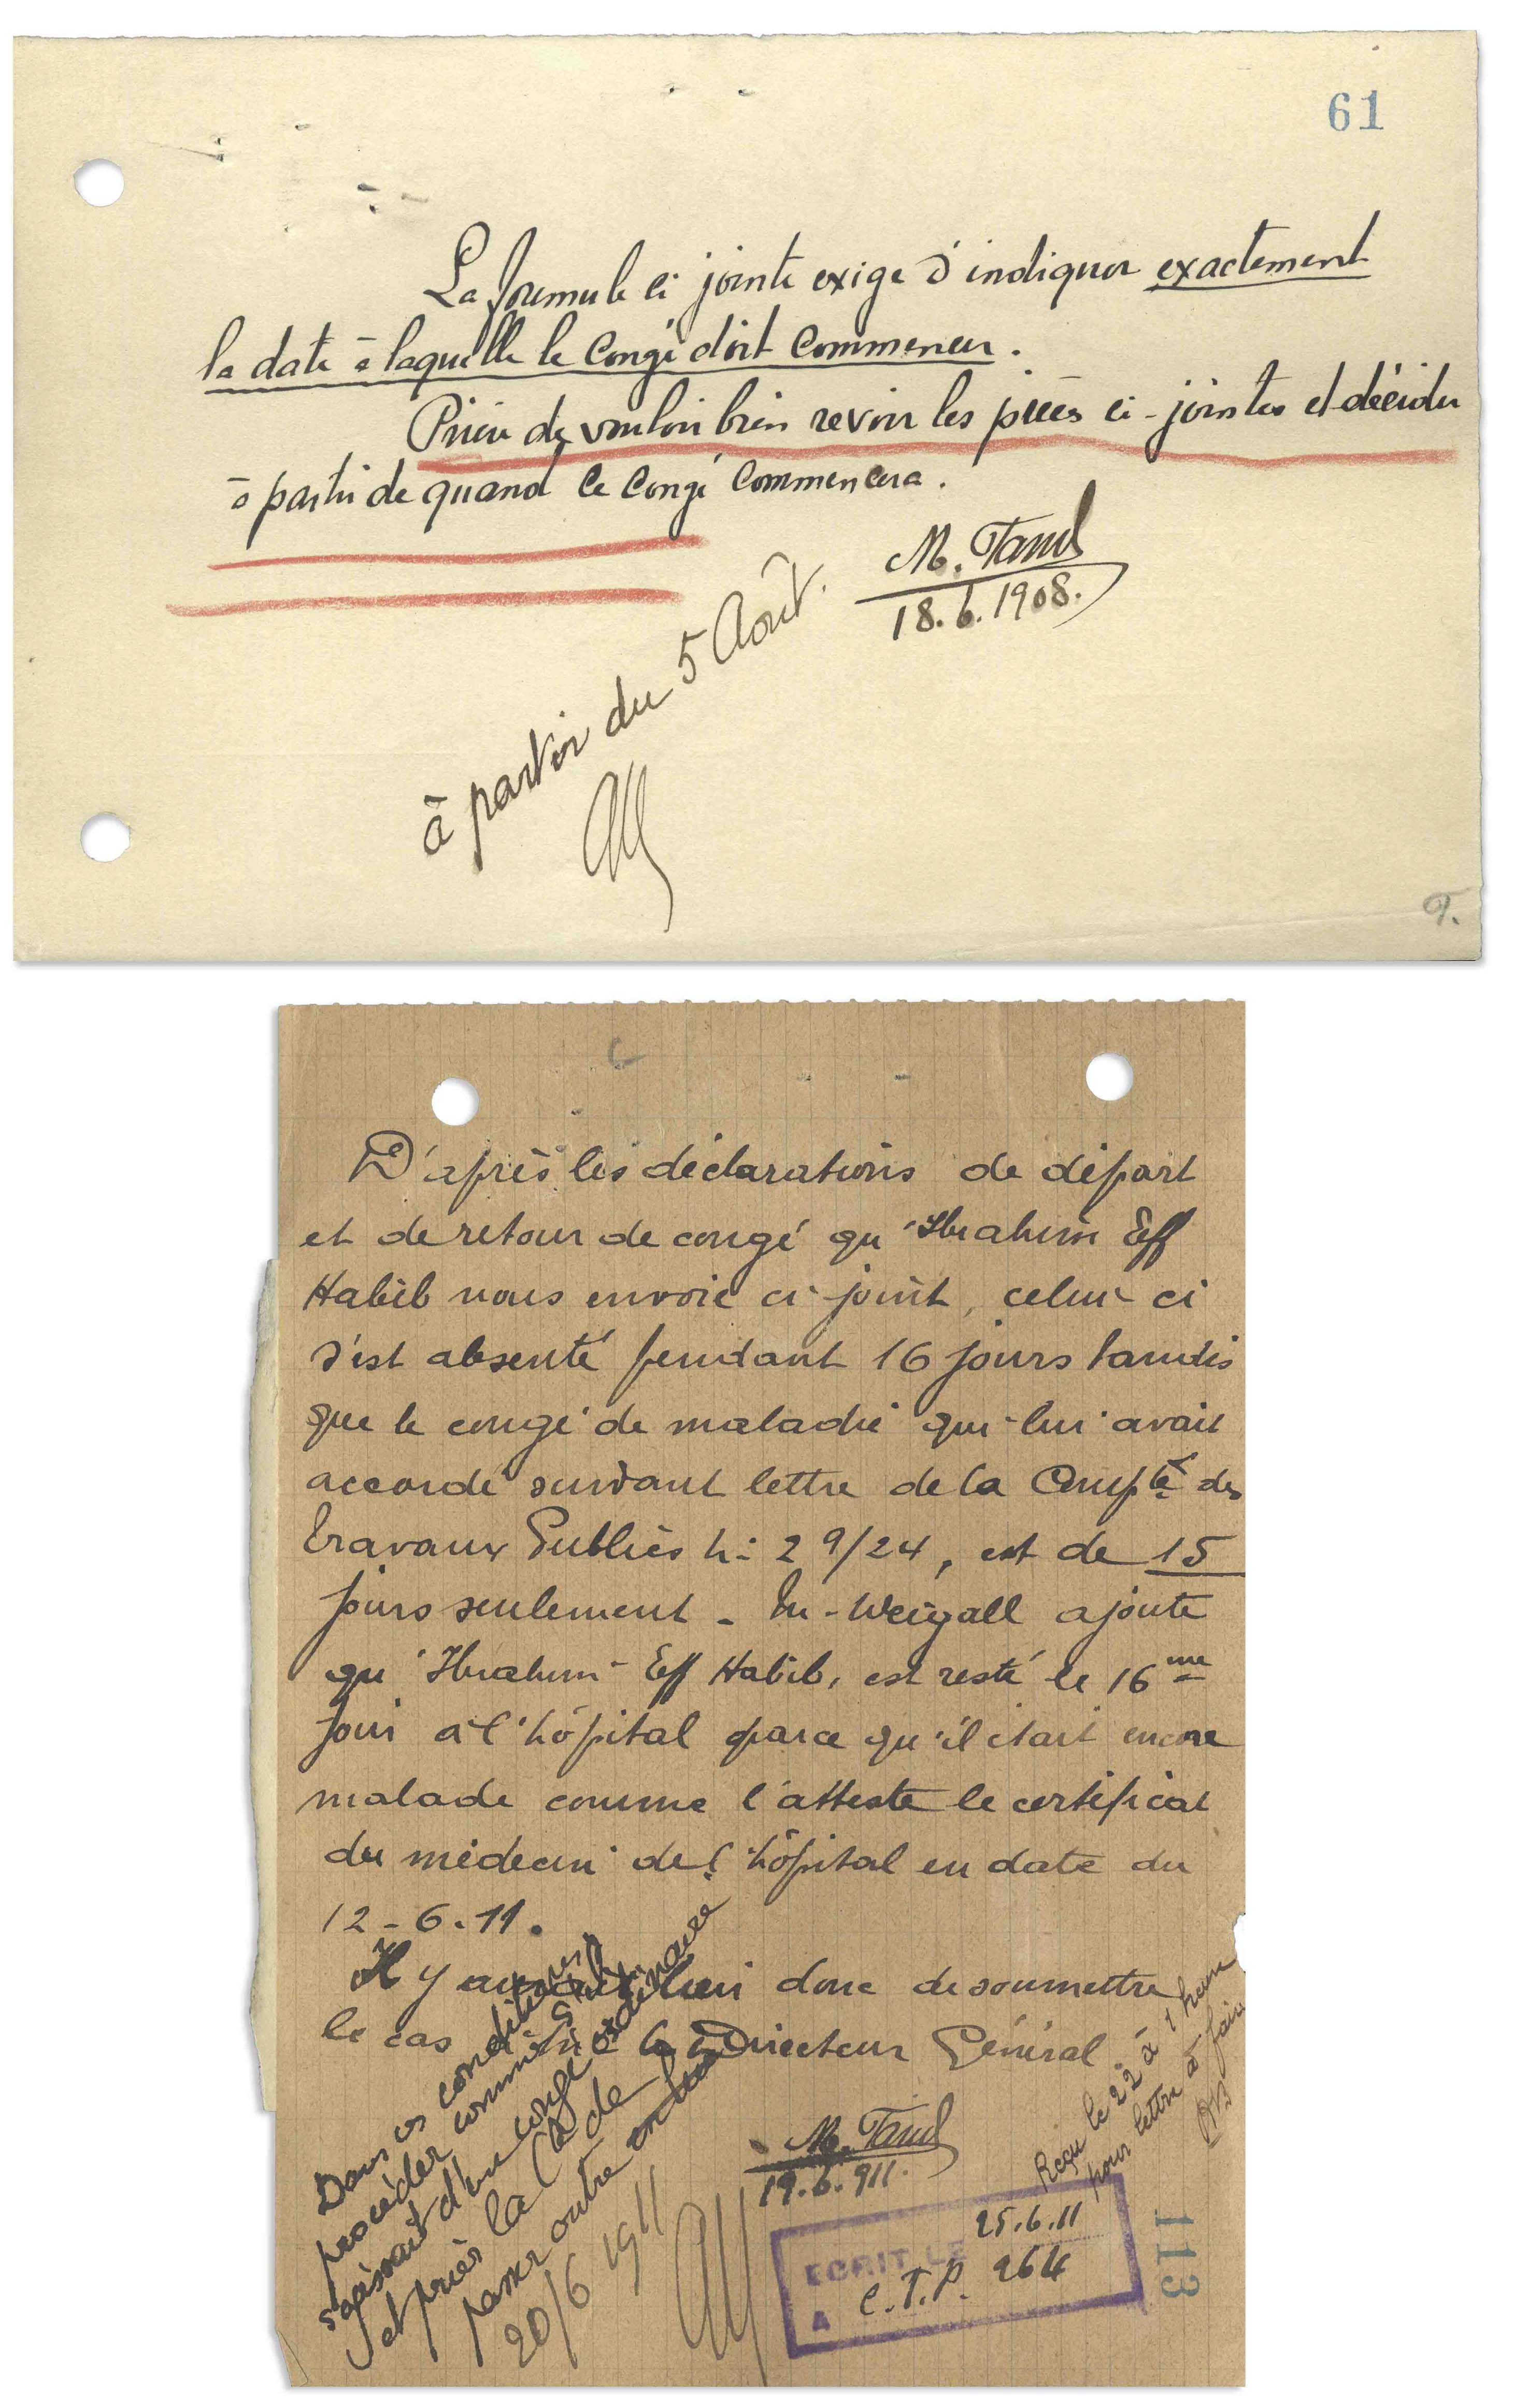 61
La formule ci jointe exige d'indiquer exactement
la date à laquelle le Congé doit commencer.
Prière de vouloir bien revoir les pièces ci-jointes et décider
à partir de quand ce Congé Commencera.
M. Tand
18.6.1908.
à partir du 5 Août.
T.
D'après les déclarations de départ
et de retour de congé qu'Ibrahim Eff
Habib nous envoie ci-joint, celui-ci
s'est absenté pendant 16 jours tandis
que le congé de maladie qui lui avait
accordé suivant lettre de la Compté des
Travaux Publics No 29/24, est de 15
jours seulement - Mr Weigall ajoute
qu'Ibrahim Eff Habib, est resté le 16me
jour à l'hôpital parce qu'il était encore
malade comme l'atteste le certificat
du médecin de l'hôpital en date du
12-6-11.
Il y aurait lieu donc de soumettre
le cas à Mr le Directeur Général.
M. Tand
19.6.911.
Dans ces conditions
procéder comme s'il
s'agissait d'un congé ordinaire
et prier la Cté de
passer outre
20/6 1911
Reçu le 22 à 1 heure
pour lettre à faire
ECRIT LE 25.6.11
A C.T.P. 264
113